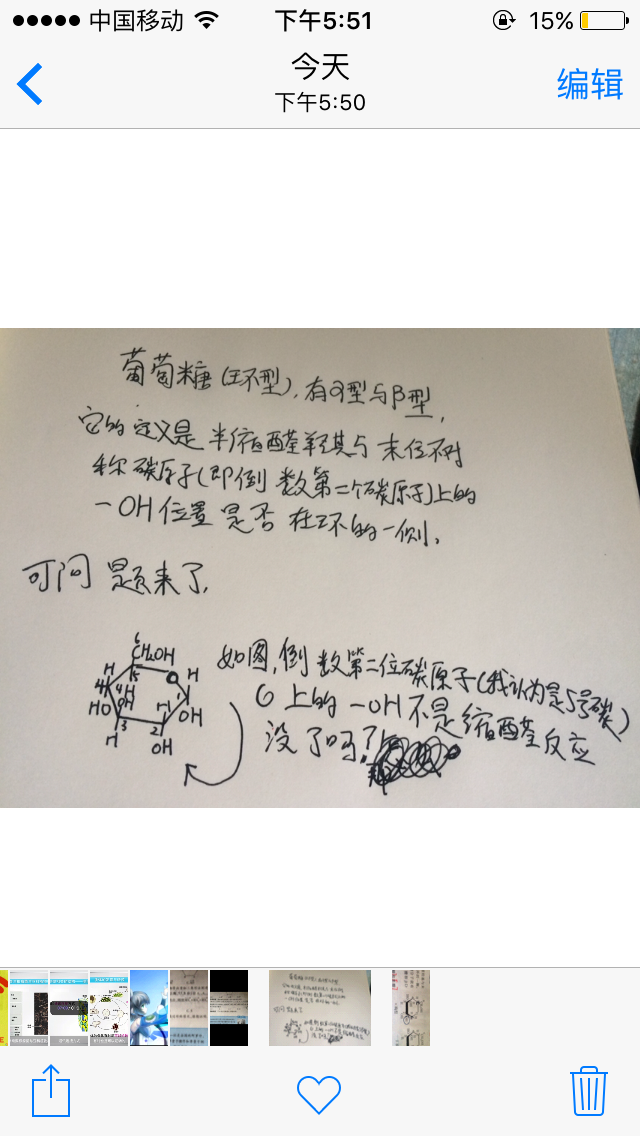 中国移动 下午5:51 15%
今天
下午5:50
编辑
葡萄糖(环型),有α型与β型,
它的定义是半缩醛羟基与末位不对
称碳原子(即倒数第二个碳原子)上的
-OH位置是否在环的一侧。
可问题来了,
如图,倒数第二位碳原子(我认为是5号碳)
上的-OH不是缩醛反应
没了吗?!
6
CH₂OH
H
5
O
H
4
H
OH
1
HO
OH
3
2
H
H
OH